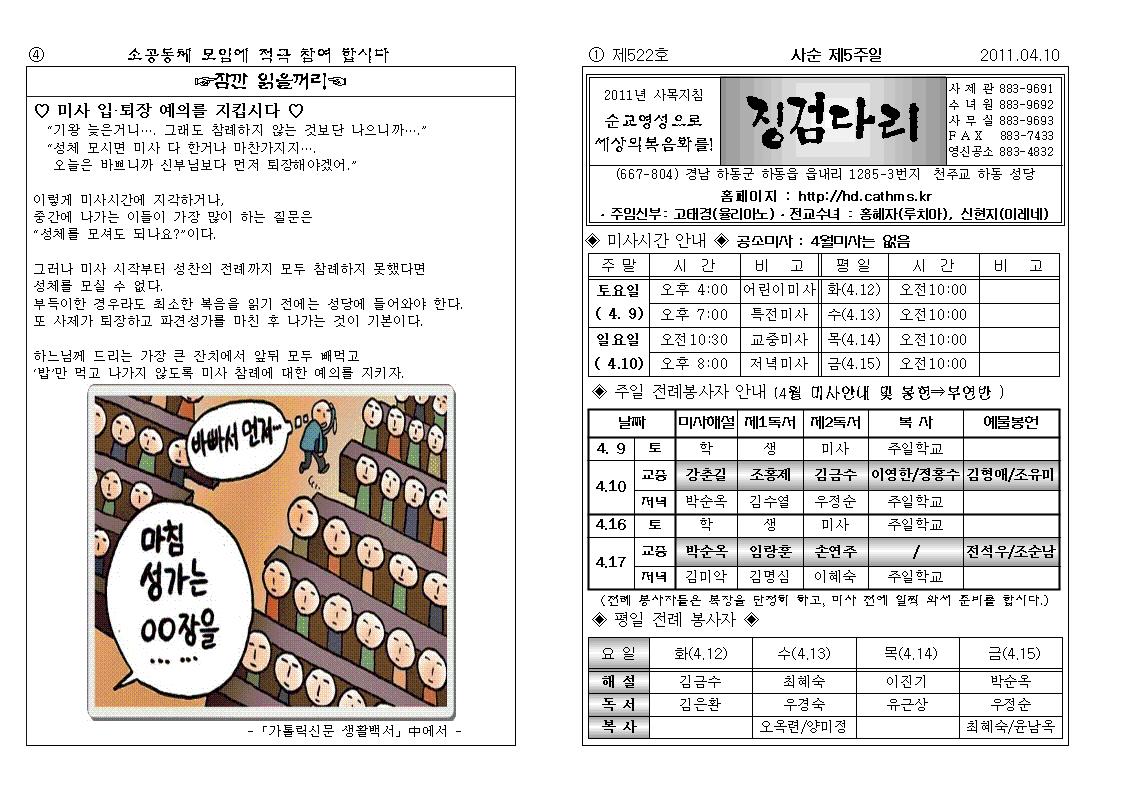 ④ 소공동체 모임에 적극 참여 합시다
☞잠깐 읽을꺼리☜
♡ 미사 입·퇴장 예의를 지킵시다 ♡
“기왕 늦은거니…. 그래도 참례하지 않는 것보단 나으니까….”
“성체 모시면 미사 다 한거나 마찬가지지….
오늘은 바쁘니까 신부님보다 먼저 퇴장해야겠어.”
이렇게 미사시간에 지각하거나,
중간에 나가는 이들이 가장 많이 하는 질문은
“성체를 모셔도 되나요?”이다.
그러나 미사 시작부터 성찬의 전례까지 모두 참례하지 못했다면
성체를 모실 수 없다.
부득이한 경우라도 최소한 복음을 읽기 전에는 성당에 들어와야 한다.
또 사제가 퇴장하고 파견성가를 마친 후 나가는 것이 기본이다.
하느님께 드리는 가장 큰 잔치에서 앞뒤 모두 빼먹고
‘밥’만 먹고 나가지 않도록 미사 참례에 대한 예의를 지키자.
바빠서 먼저…
마침
성가는
○○장을
… …
-「가톨릭신문 생활백서」中에서 -
① 제522호 사순 제5주일 2011.04.10
2011년 사목지침
순교영성으로
세상의복음화를!
징검다리
사 제 관 883-9691
수 녀 원 883-9692
사 무 실 883-9693
F A X 883-7433
영신공소 883-4832
(667-804) 경남 하동군 하동읍 읍내리 1285-3번지 천주교 하동 성당
홈페이지 : http://hd.cathms.kr
· 주임신부: 고태경(율리아노) · 전교수녀 : 홍혜자(루치아), 신현지(이레네)
◈ 미사시간 안내 ◈ 공소미사 : 4월미사는 없음
주 말 시 간 비 고 평 일 시 간 비 고
토요일 오후 4:00 어린이미사 화(4.12) 오전10:00
( 4. 9) 오후 7:00 특전미사 수(4.13) 오전10:00
일요일 오전10:30 교중미사 목(4.14) 오전10:00
( 4.10) 오후 8:00 저녁미사 금(4.15) 오전10:00
◈ 주일 전례봉사자 안내 (4월 미사안내 및 봉헌⇒부연반 )
날짜 미사해설 제1독서 제2독서 복 사 예물봉헌
4. 9 토 학 생 미사 주일학교
4.10 교중 강춘길 조홍제 김금수 이영한/정홍수 김형애/조유미
저녁 박순옥 김수열 우정순 주일학교
4.16 토 학 생 미사 주일학교
4.17 교중 박순옥 임랑훈 손연주 / 전석우/조순남
저녁 김미악 김명심 이혜숙 주일학교
(전례 봉사자들은 복장을 단정히 하고, 미사 전에 일찍 와서 준비를 합시다.)
◈ 평일 전례 봉사자 ◈
요 일 화(4.12) 수(4.13) 목(4.14) 금(4.15)
해 설 김금수 최혜숙 이진기 박순옥
독 서 김은환 우경숙 유근상 우정순
복 사 오옥련/양미정 최혜숙/윤남옥